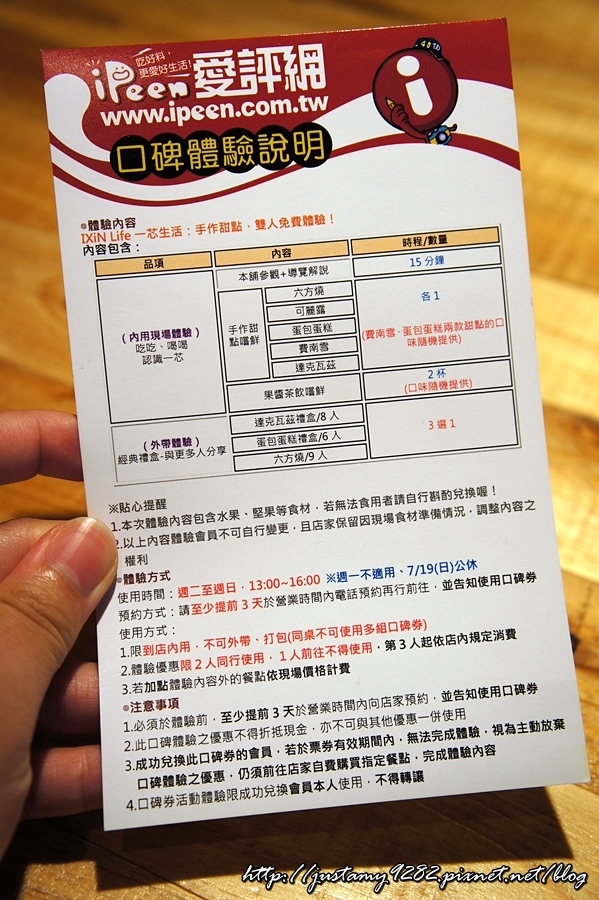 吃好料，
更愛好生活！
iPeen 愛評網
www.ipeen.com.tw
口碑體驗說明
◎體驗內容
IXiN Life 一芯生活：手作甜點，雙人免費體驗！
內容包含：
品項 內容 時程/數量
(內用現場體驗)
吃吃、喝喝
認識一芯
本舖參觀+導覽解說 15分鐘
手作甜點嚐鮮
六方燒
可麗露
蛋包蛋糕
費南雪
達克瓦茲
各1
(費南雪、蛋包蛋糕兩款甜點的口
味隨機提供)
果醬茶飲嚐鮮
2杯
(口味隨機提供)
(外帶體驗)
經典禮盒-與更多人分享
達克瓦茲禮盒/8人
蛋包蛋糕禮盒/6人
六方燒/9人
3選1
※貼心提醒
1.本次體驗內容包含水果、堅果等食材，若無法食用者請自行斟酌兌換喔！
2.以上內容體驗會員不可自行變更，且店家保留因現場食材準備情況，調整內容之
權利
◎體驗方式
使用時間：週二至週日，13:00~16:00 ※週一不適用、7/19(日)公休
預約方式：請至少提前3天於營業時間內電話預約再行前往，並告知使用口碑券
使用方式：
1.限到店內用，不可外帶、打包(同桌不可使用多組口碑券)
2.體驗優惠限2人同行使用，1人前往不得使用，第3人起依店內規定消費
3.若加點體驗內容外的餐點依現場價格計費
◎注意事項
1.必須於體驗前，至少提前3天於營業時間內向店家預約，並告知使用口碑券
2.此口碑體驗之優惠不得折抵現金，亦不可與其他優惠一併使用
3.成功兌換此口碑券的會員，若於票券有效期間內，無法完成體驗，視為主動放棄
口碑體驗之優惠，仍須前往店家自費購買指定餐點，完成體驗內容
4.口碑券活動體驗限成功兌換會員本人使用，不得轉讓
http://justamy9282.pixnet.net/blog